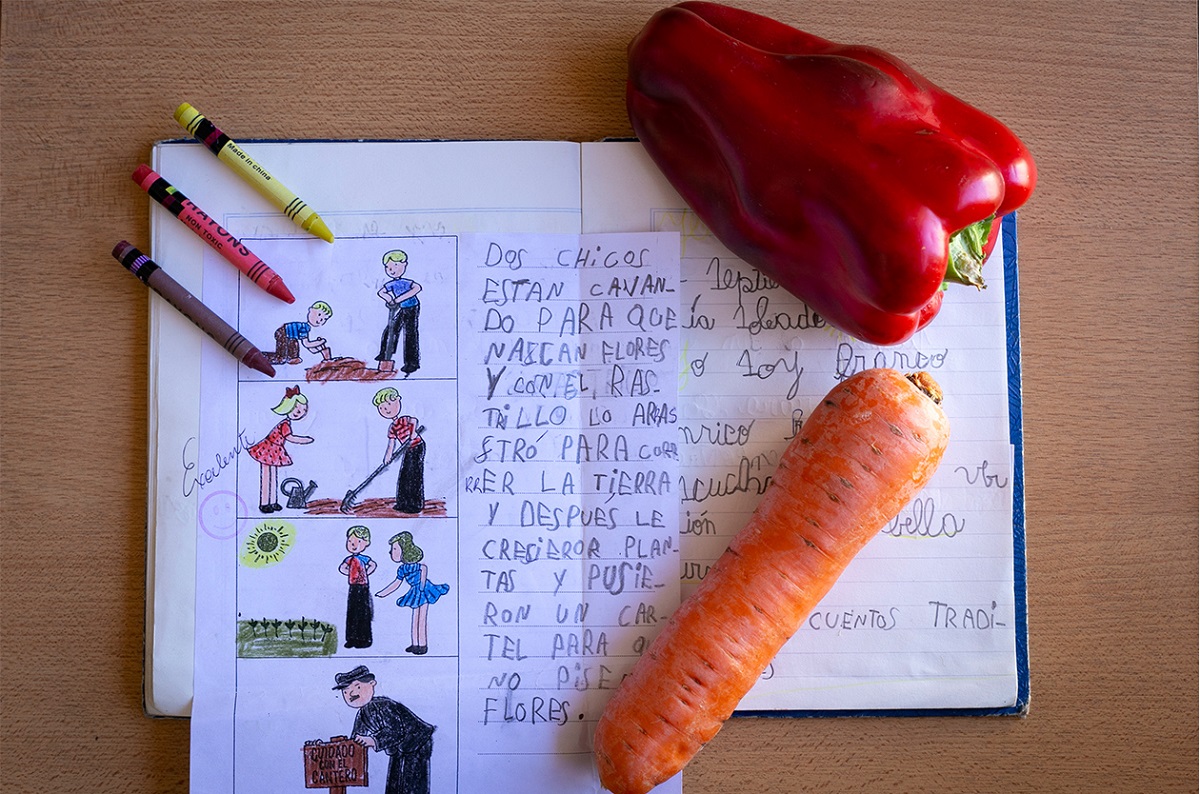 Made in china
NON TOXIC
Excelente
CUIDADO
CON EL
CANTERO
DOS CHICOS
ESTAN CAVAN-
DO PARA QUE
NAZCAN FLORES
Y CON EL RAS-
TRILLO LO ARRAS
STRÓ PARA CORR
RER LA TIERRA
Y DESPUÉS LE
CRESIEROR PLAN-
TAS Y PUSIE-
RON UN CAR-
TEL PARA
NO PISE
FLORES.
ía
o Soy Franco
nrico
ión bella
CUENTOS TRADI-